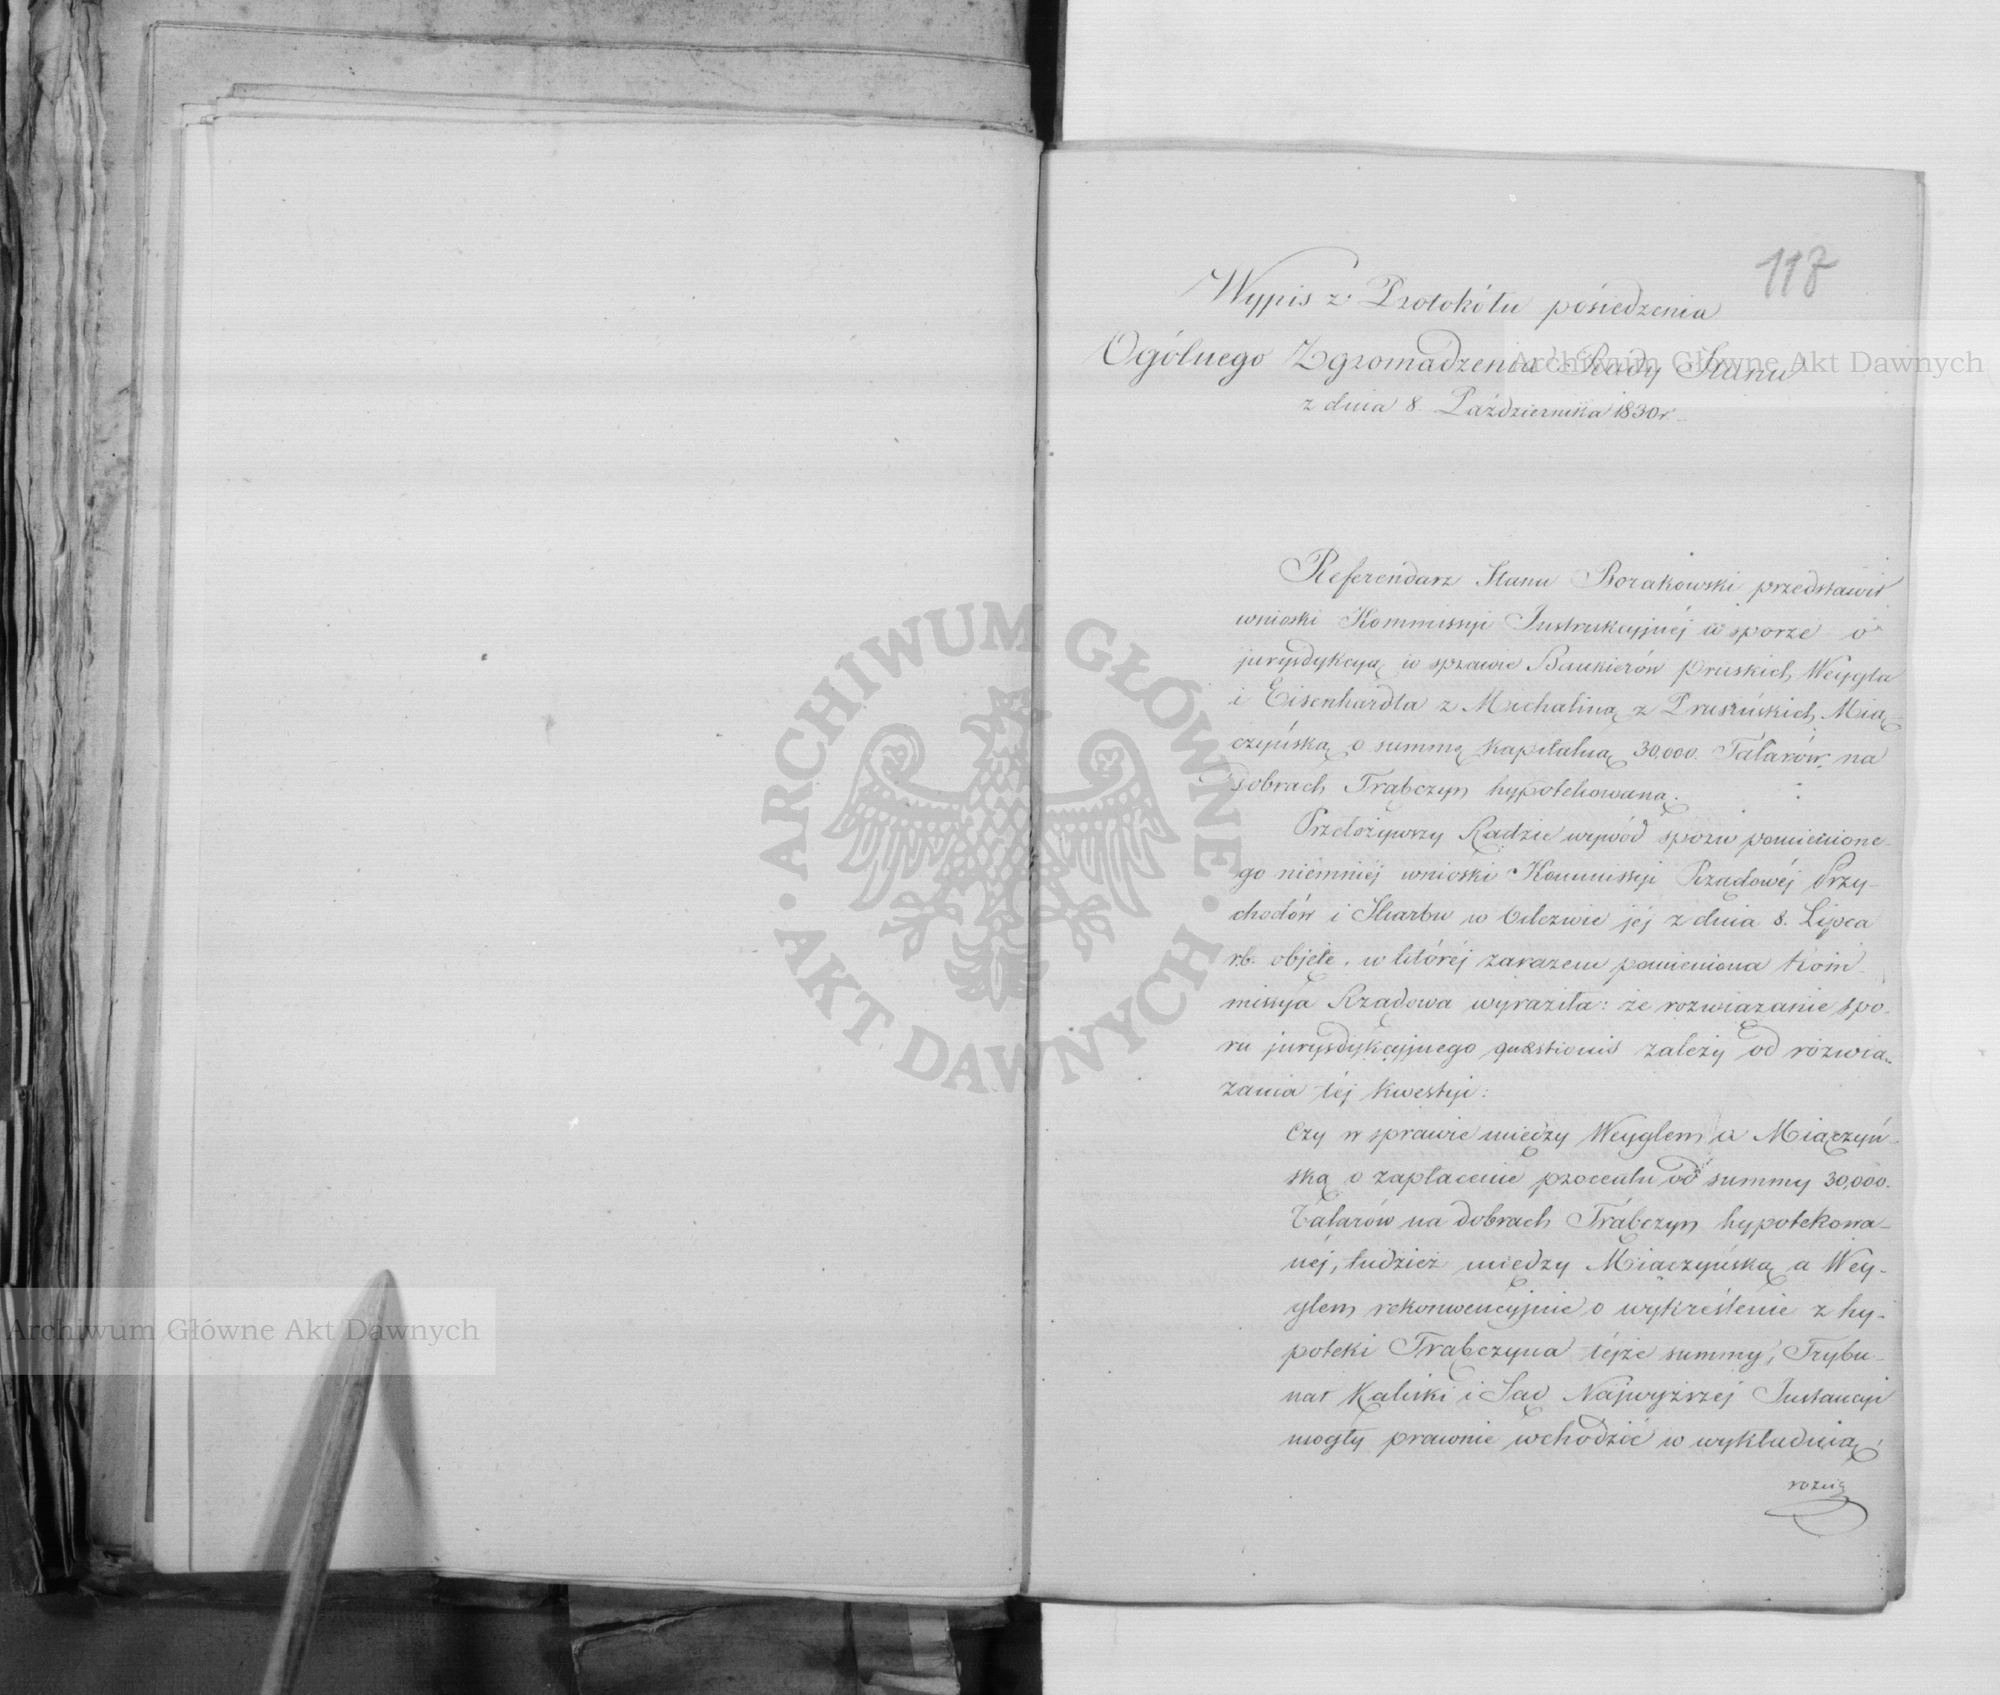 118
Wypis z Protokółu posiedzenia
Ogólnego Zgromadzenia Rady Stanu
z dnia 8 Października 1830 r.
Referendarz Stanu Borakowski przedstawił
wnioski Kommissyi Instrukcyjnéj w sporze o
jurysdykcyą w sprawie Bankierów Pruskich Weygla
i Eisenhardta z Michaliną z Pruszińskich Mią-
czyńską o summę kapitalną 30,000. Talarów na
Dobrach Trąbczyn hypotekowaną.
Przełożywszy Radzie wywód sporu pomienione-
go niemniéj wnioski Kommissyi Rządowéj Przy-
chodów i Skarbu w Odezwie jéj z dnia 8. Lipca
r.b. objęte, w któréj zarazem pomieniona Kom-
missyja Rządowa wyraziła: że rozwiązanie spo-
ru jurysdykcyjnego quaestionis zależy od rozwią-
zania téj kwestyi:
Czy w sprawie między Weyglem a Miączyń-
ską o zapłacenie procentu od summy 30,000.
Talarów na dobrach Trąbczyn hypotekowa-
néj, tudzież między Miączyńską a Wey-
glem rekonwencyjnie o wykreślenie z hy-
poteki Trąbczyna téjże summy, Trybu-
nał Kaliski i Sąd Najwyższéj Instancyi
mogły prawnie wchodzić w wykładnią
Archiwum Główne Akt Dawnych
Archiwum Główne Akt Dawnych
ARCHIWUM GŁÓWNE · AKT DAWNYCH ·